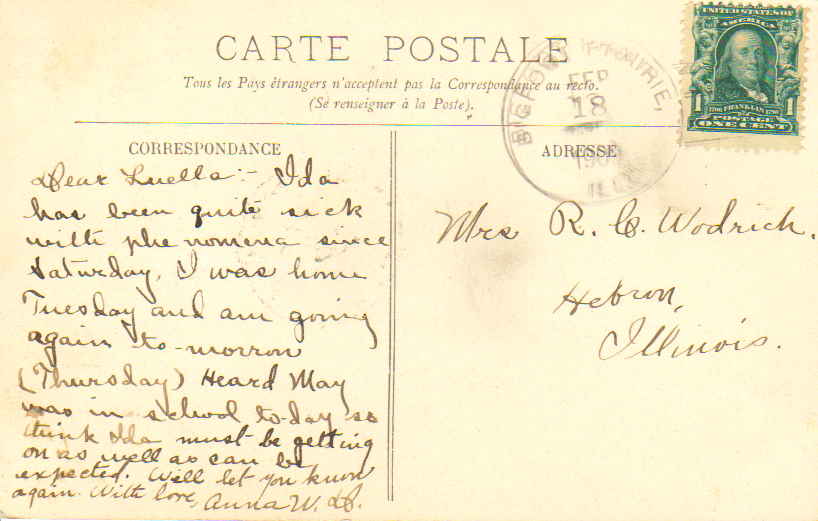 CARTE POSTALE
Tous les Pays étrangers n'acceptent pas la Correspondance au recto.
(Se renseigner à la Poste).
FEB
18
ILL
UNITED STATES OF
AMERICA
1 FRANKLIN 1
POSTAGE
ONE CENT
CORRESPONDANCE
Dear Luella:- Ida
has been quite sick
with phe nomena since
Saturday, I was home
Tuesday and am going
again to-morrow
(Thursday) Heard May
was in school to-day so
think Ida must be getting
on as well as can be
expected. Will let you know
again. With love, Anna W. D.
ADRESSE
Mrs R. C. Wodrich.
Hebron,
Illinois.